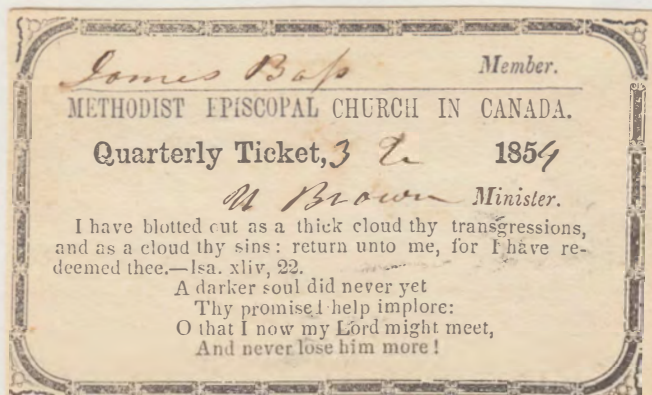 James Bass Member.
METHODIST EPISCOPAL CHURCH IN CANADA.
Quarterly Ticket, 3 1854
Brown Minister.
I have blotted out as a thick cloud thy transgressions,
and as a cloud thy sins: return unto me, for I have re-
deemed thee.—Isa. xliv, 22.
A darker soul did never yet
Thy promised help implore:
O that I now my Lord might meet,
And never lose him more!